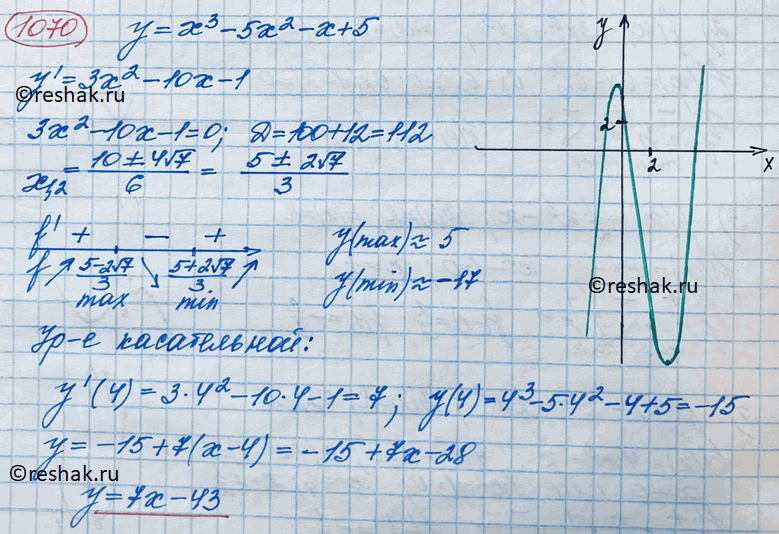 1070 y = x³ − 5x² − x + 5
y' = 3x² − 10x − 1
©reshak.ru
3x² − 10x − 1 = 0; D = 100 + 12 = 112
x₁,₂ = (10 ± 4√7)/6 = (5 ± 2√7)/3
f' + − +
f ↗ (5−2√7)/3 ↘ (5+2√7)/3 ↗
max min
y(max) ≈ 5
y(min) ≈ −17
y
2
2
x
©reshak.ru
Ур-е касательной:
y'(4) = 3·4² − 10·4 − 1 = 7; y(4) = 4³ − 5·4² − 4 + 5 = −15
y = −15 + 7(x − 4) = −15 + 7x − 28
©reshak.ru
y = 7x − 43